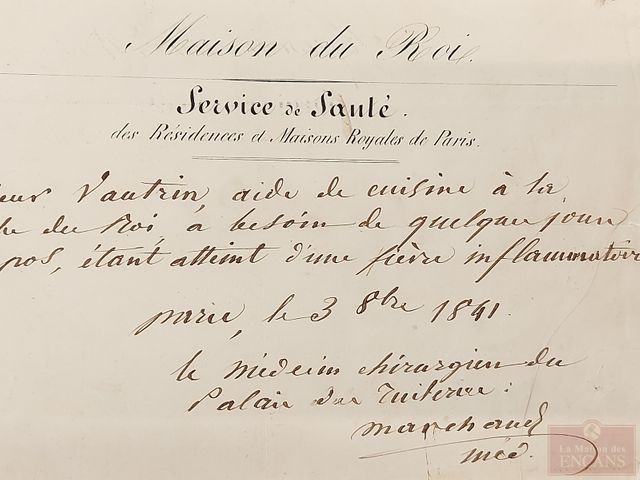 Maison du Roi.
Service de Santé.
des Résidences et Maisons Royales de Paris.
ieur Vautrin, aide de cuisine à la
he du Roi, a besoin de quelque jour
pos, étant atteint d'une fièvre inflammatoire
paris, le 3 8bre 1841.
le médecin chirurgien du
Palais des Tuileries :
Marchand
méd.
La Maison des
ENCANS